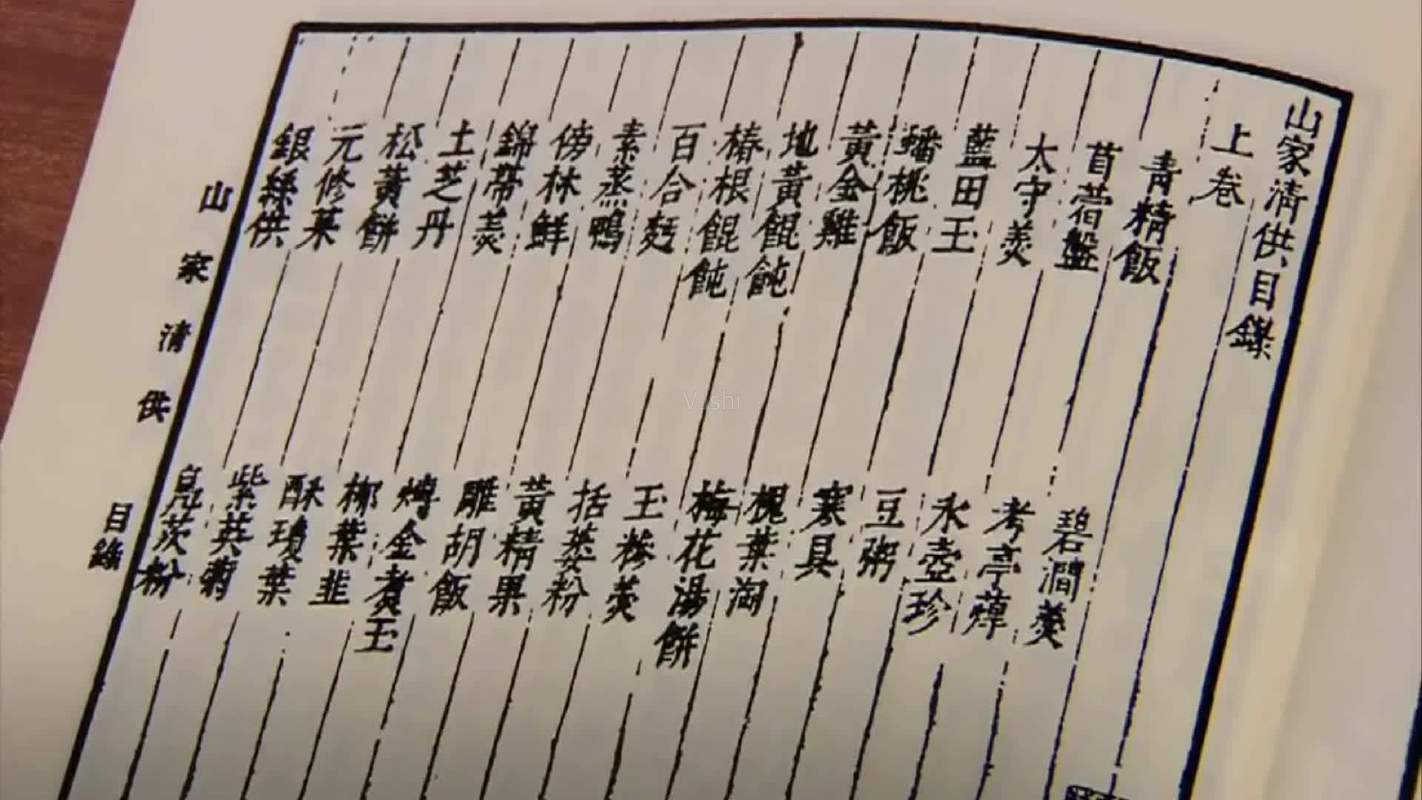 山家清供目錄
上卷
青精飯 碧澗羹
苜蓿盤 考亭蔊
太守羹 氷壺珍
藍田玉 豆粥
蟠桃飯 寒具
黃金雞 槐葉淘
地黃餛飩 梅花湯餅
椿根餛飩 玉糝羹
百合麪 括蔞粉
素蒸鴨 黃精果
傍林鮮 雕胡飯
錦帶羹 煿金煑玉
土芝丹 柳葉韭
松黃餅 酥瓊葉
元修菜 紫英菊
銀絲供 鳧茨粉
山家清供 目錄